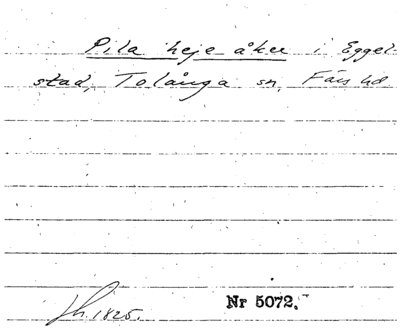 Pila heje åker i Eggel-
stad, Tolånga sn, Färs hd
h. 1825.
Nr 5072.